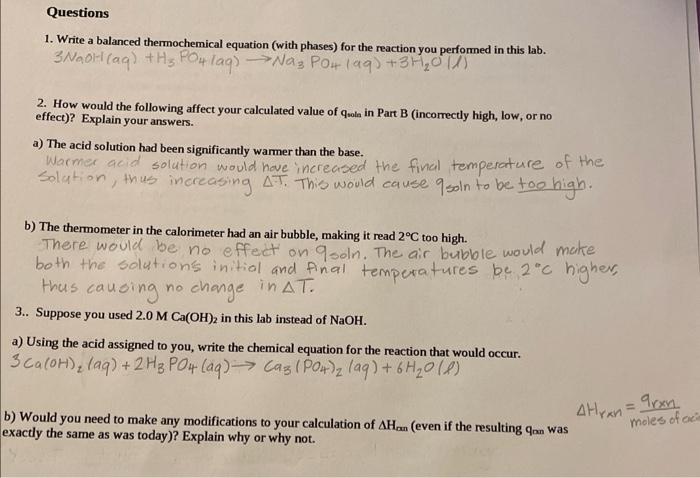 Questions
1. Write a balanced thermochemical equation (with phases) for the reaction you performed in this lab.
3NaOH(aq) + H₃PO₄(aq) → Na₃PO₄(aq) + 3H₂O(l)
2. How would the following affect your calculated value of qsoln in Part B (incorrectly high, low, or no
effect)? Explain your answers.
a) The acid solution had been significantly warmer than the base.
Warmer acid solution would have increased the final temperature of the
solution, thus increasing ΔT. This would cause qsoln to be too high.
b) The thermometer in the calorimeter had an air bubble, making it read 2°C too high.
There would be no effect on qsoln. The air bubble would make
both the solutions initial and final temperatures be 2°C higher,
thus causing no change in ΔT.
3.. Suppose you used 2.0 M Ca(OH)₂ in this lab instead of NaOH.
a) Using the acid assigned to you, write the chemical equation for the reaction that would occur.
3Ca(OH)₂(aq) + 2H₃PO₄(aq) → Ca₃(PO₄)₂(aq) + 6H₂O(l)
ΔHrxn = qrxn
moles of aci
b) Would you need to make any modifications to your calculation of ΔHrxn (even if the resulting qrxn was
exactly the same as was today)? Explain why or why not.